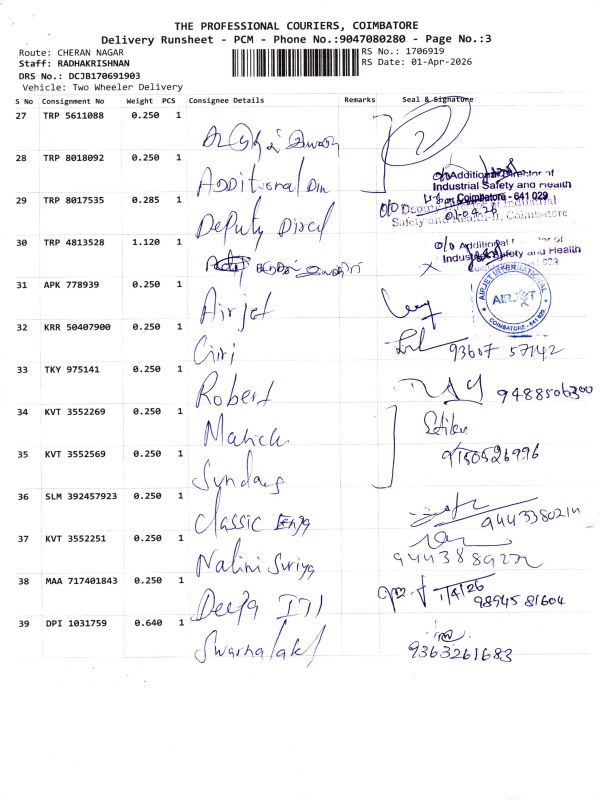 THE PROFESSIONAL COURIERS, COIMBATORE
Delivery Runsheet - PCM - Phone No.:9047080280 - Page No.:3
Route: CHERAN NAGAR
RS No.: 1706919
Staff: RADHAKRISHNAN
RS Date: 01-Apr-2026
DRS No.: DCJB170691903
Vehicle: Two Wheeler Delivery
S No Consignment No Weight PCS Consignee Details Remarks Seal & Signature
27 TRP 5611088 0.250 1
28 TRP 8018092 0.250 1
Additional Dir
Additional Director of
Industrial Safety and Health
Coimbatore - 641 029
29 TRP 8017535 0.285 1
Deputy Direct
01-04-26
Safety and Health-II, Coimbatore
30 TRP 4813528 1.120 1
Additional
Industrial Safety and Health
31 APK 778939 0.250 1
Airjet
AIRJET INTERNATIONAL
AIRJET
COIMBATORE - 641 029
32 KRR 50407900 0.250 1
Giri
93607 57142
33 TKY 975141 0.250 1
Robert
9488506300
34 KVT 3552269 0.250 1
Manick
35 KVT 3552569 0.250 1
Sundar
9150526996
36 SLM 392457923 0.250 1
Classic Engg
37 KVT 3552251 0.250 1
Nalini Suriya
38 MAA 717401843 0.250 1
Deepa ITI
1/4/26
98945 81604
39 DPI 1031759 0.640 1
Swarnalaks
9363261683